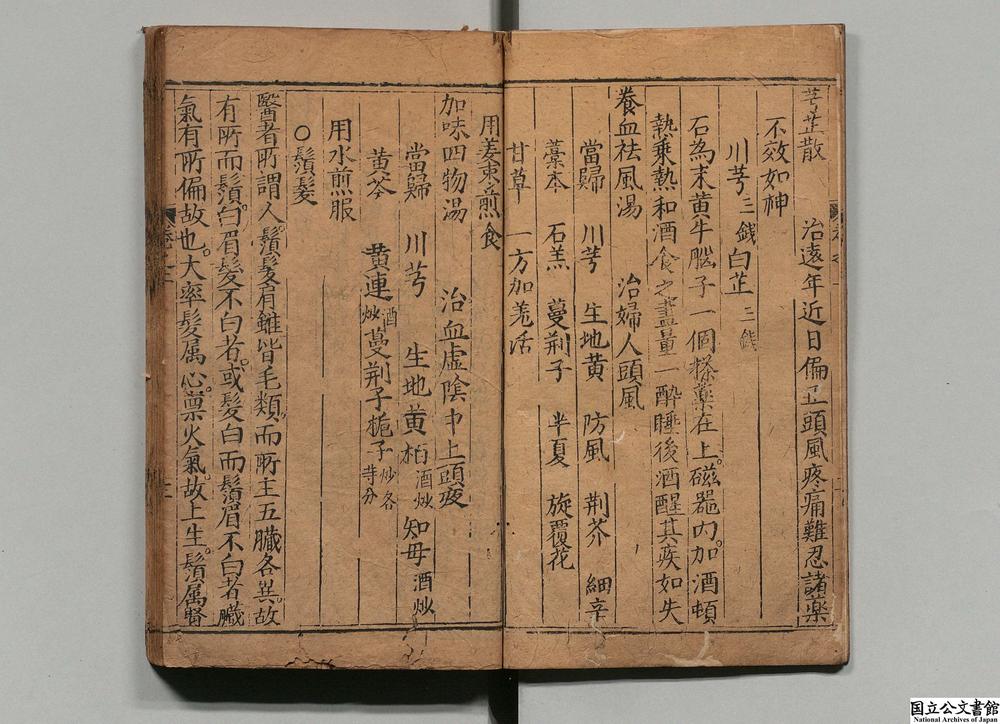 芎芷散 治遠年近日偏正頭風疼痛難忍諸藥
不效如神
川芎三錢白芷三錢
石為末黄牛腦子一個搽藥在上磁器内加酒頓
熟乗熱和酒食之盡量一醉睡後酒醒其疾如失
養血祛風湯 治婦人頭風
當歸 川芎 生地黄 防風 荆芥 細辛
藁本 石羔 蔓荆子 半夏 旋覆花
甘草 一方加羗活
用姜束煎食
加味四物湯 治血虛陰中上頭
當歸 川芎 生地黄 柏酒炒 知母酒炒
黄芩 黄連酒炒 蔓荆子 梔子炒各等分
用水煎服
○鬚髮
醫者所謂人鬚髮眉雖皆毛類而所主五臟各異故
有所而鬚白眉髮不白者或髮白而鬚眉不白者臟
氣有所偏故也大率髮属心禀火氣故上生鬚属腎
国立公文書館
National Archives of Japan